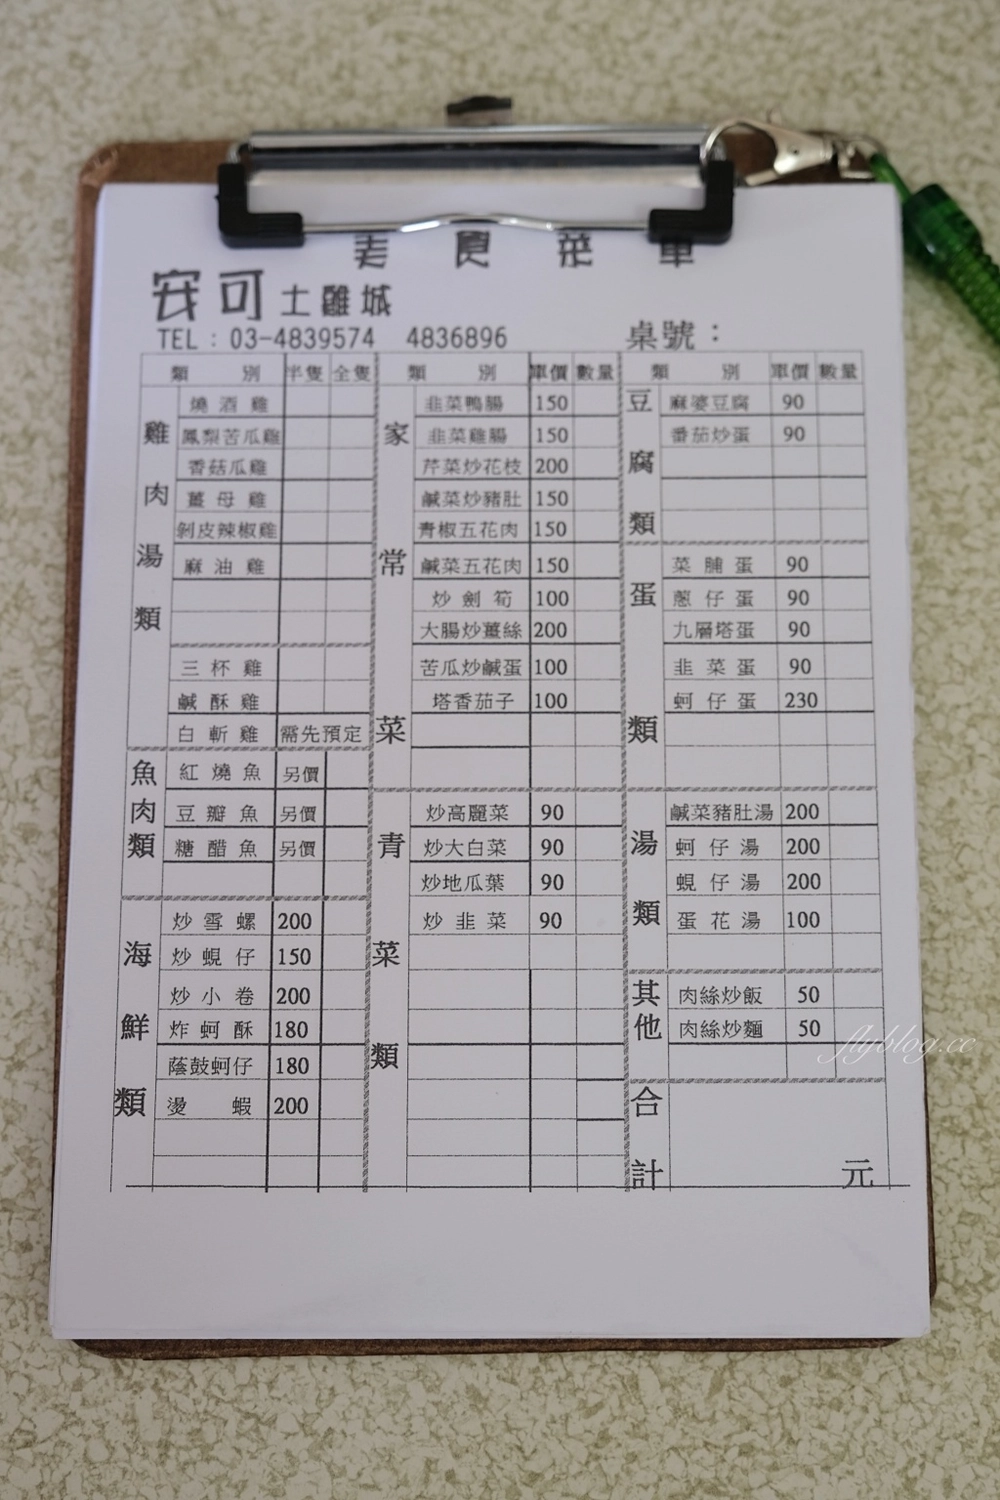 老 食 菜 單
安可 土雞城
TEL：03-4839574 4836896 桌號：
類 別 半隻 全隻
雞肉湯類
燒酒雞
鳳梨苦瓜雞
香菇瓜雞
薑母雞
剝皮辣椒雞
麻油雞
三杯雞
鹹酥雞
白斬雞 需先預定
魚肉類
紅燒魚 另價
豆瓣魚 另價
糖醋魚 另價
海鮮類
炒雪螺 200
炒蜆仔 150
炒小卷 200
炸蚵酥 180
蔭鼓蚵仔 180
燙蝦 200
類 別 單價 數量
家常菜
韭菜鴨腸 150
韭菜雞腸 150
芹菜炒花枝 200
鹹菜炒豬肚 150
青椒五花肉 150
鹹菜五花肉 150
炒劍筍 100
大腸炒薑絲 200
苦瓜炒鹹蛋 100
塔香茄子 100
青菜類
炒高麗菜 90
炒大白菜 90
炒地瓜葉 90
炒韭菜 90
類 別 單價 數量
豆腐類
麻婆豆腐 90
番茄炒蛋 90
蛋類
菜脯蛋 90
蔥仔蛋 90
九層塔蛋 90
韭菜蛋 90
蚵仔蛋 230
湯類
鹹菜豬肚湯 200
蚵仔湯 200
蜆仔湯 200
蛋花湯 100
其他
肉絲炒飯 50
肉絲炒麵 50
合計 元
flyblog.cc